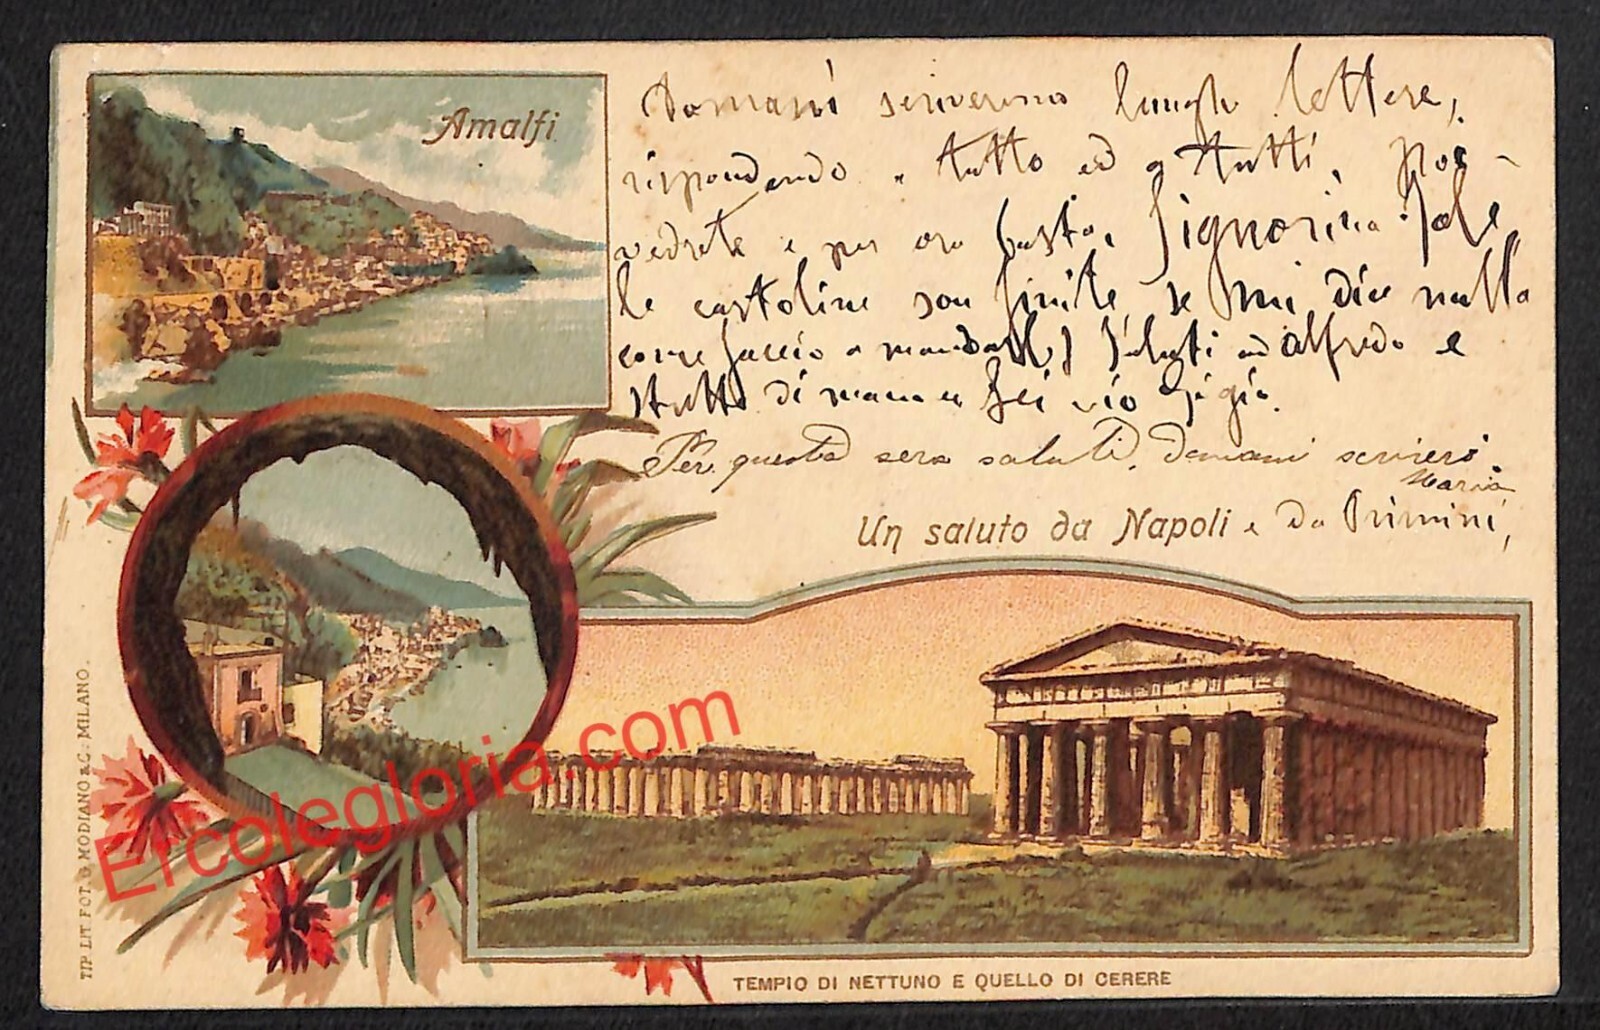 Amalfi
Domani scriveremo lunghe lettere,
rispondendo a tutto ed a tutti.
vedrete e per ora basta. Signorina Jole,
le cartoline son finite, se mi dice nulla
come faccio a mandarle? Saluti ad Alfredo e
tutti di
Per questa sera saluti. Domani scriverò.
Maria
Un saluto da Napoli e da Rimini,
Ercolegloria.com
TIP. LIT. FOT. G. MODIANO & C. MILANO.
TEMPIO DI NETTUNO E QUELLO DI CERERE